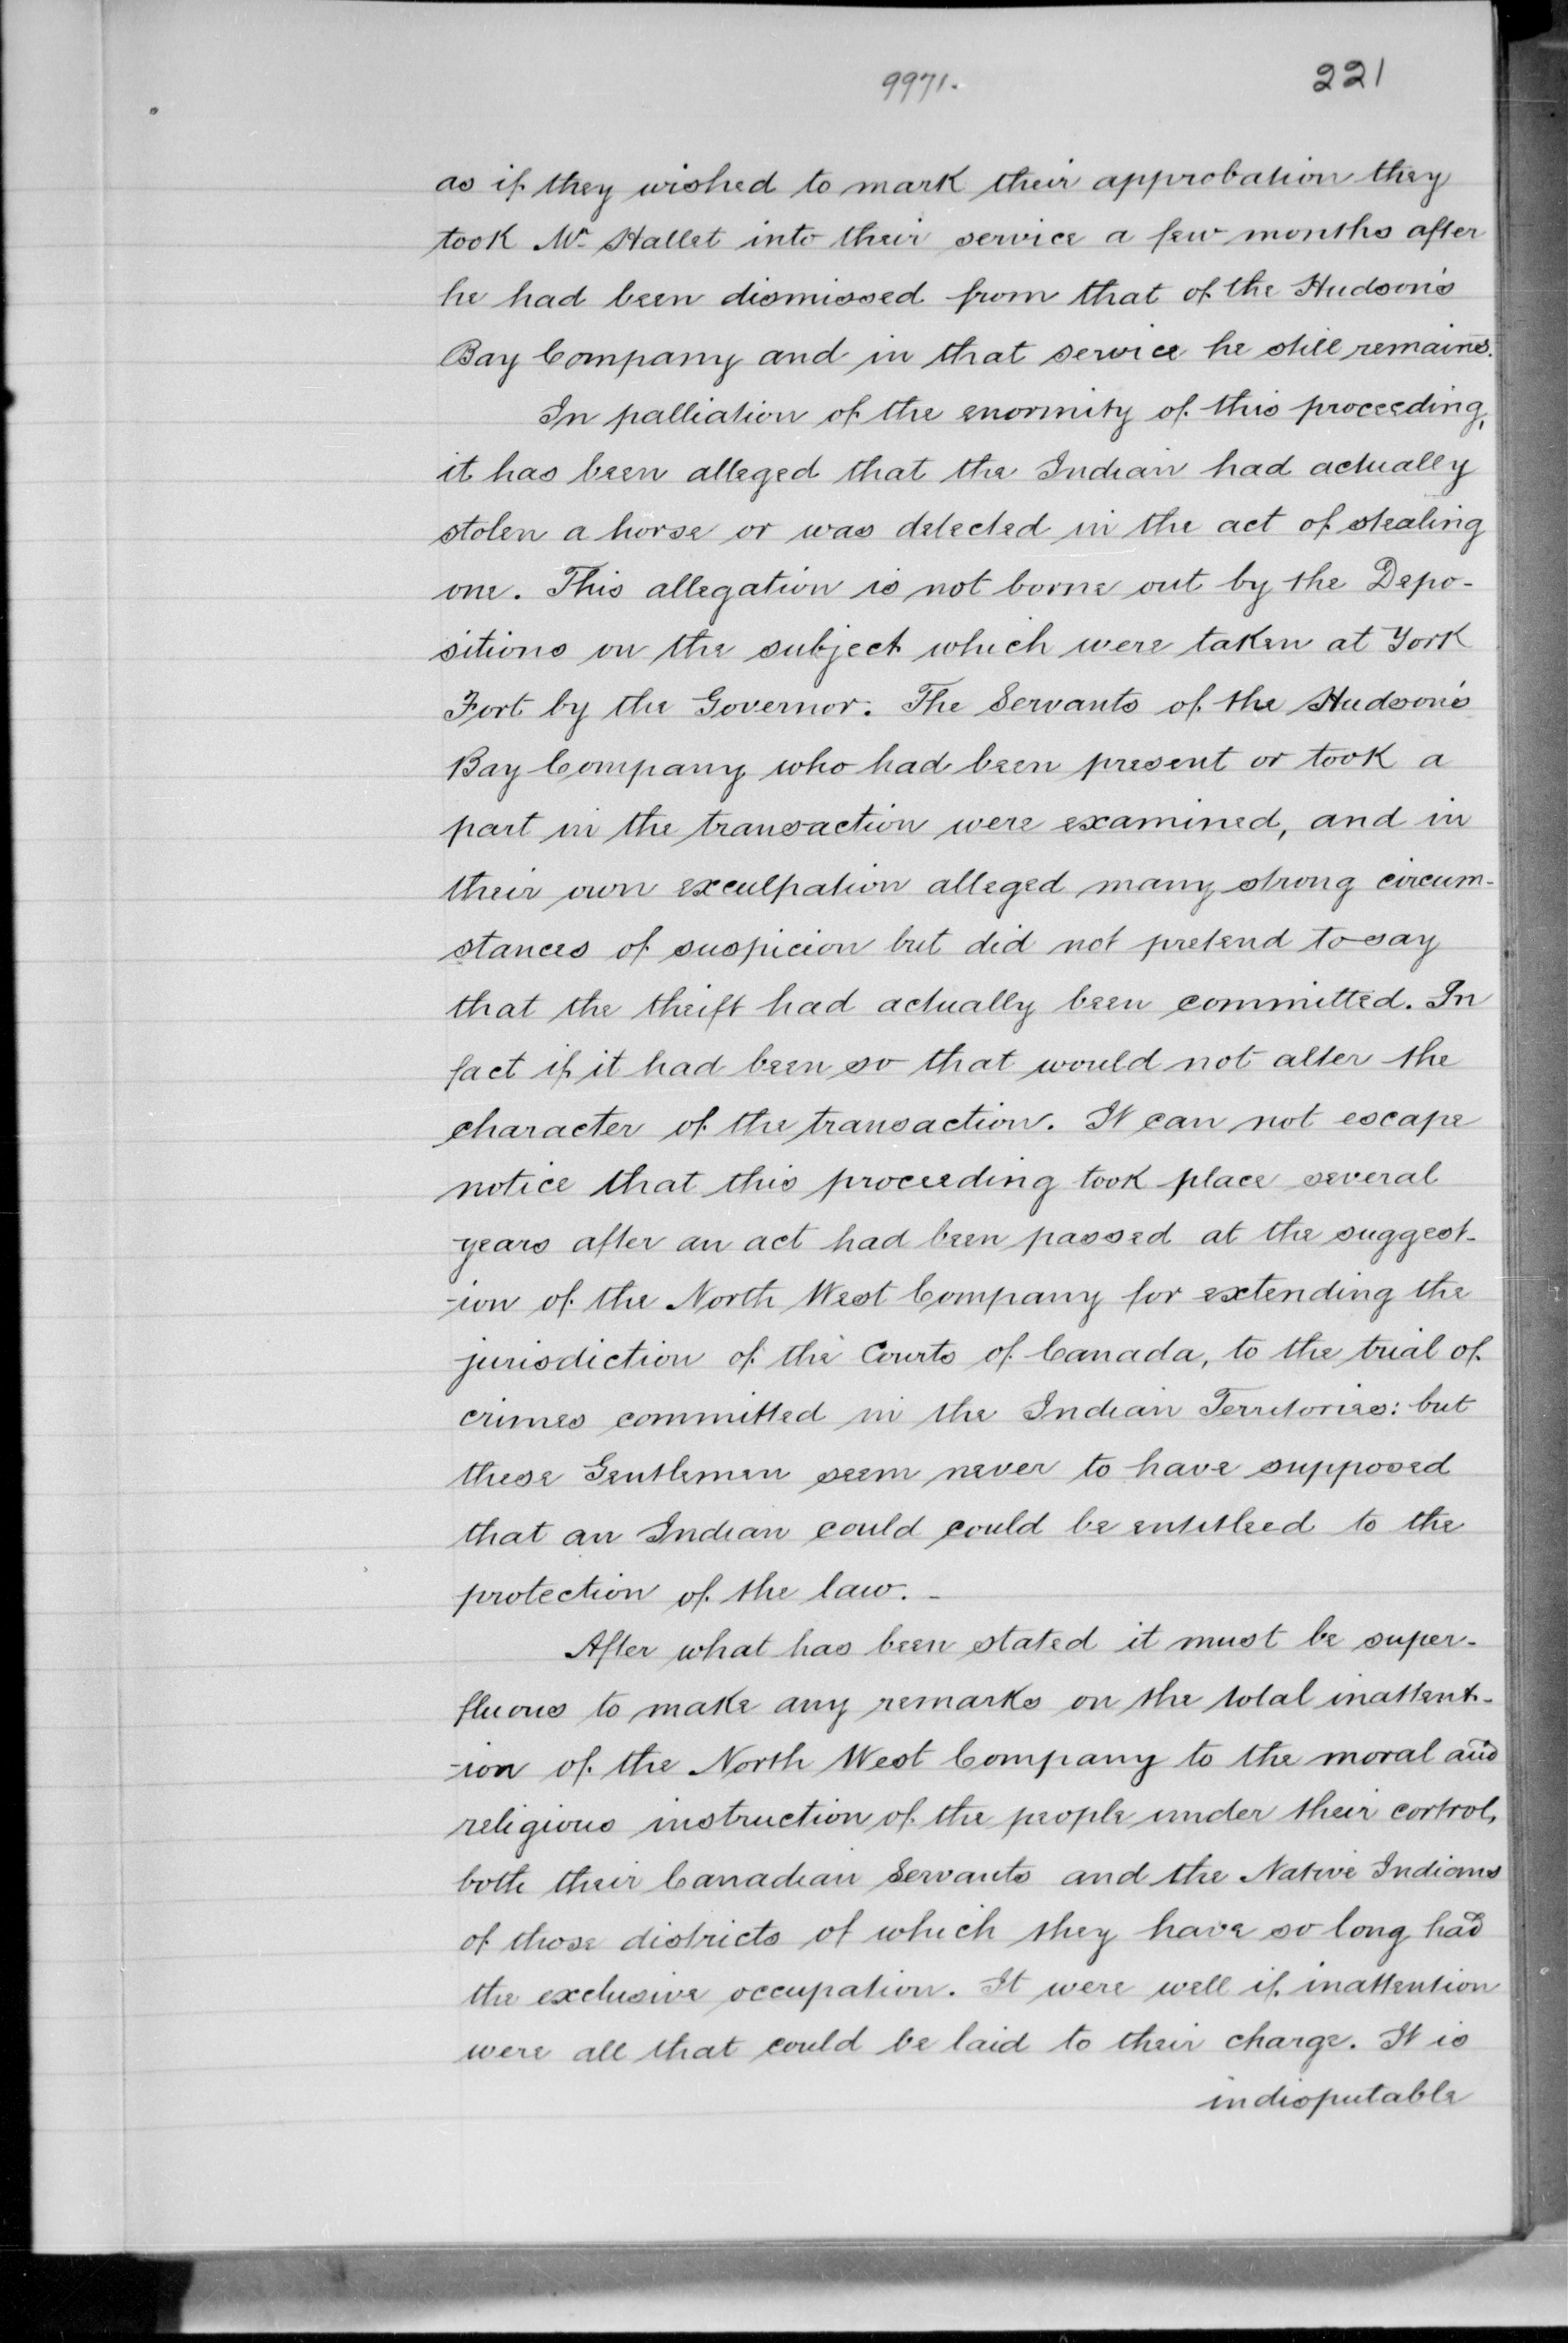 9971.
221
as if they wished to mark their approbation they
took Mr Hallet into their service a few months after
he had been dismissed from that of the Hudson's
Bay Company and in that service he still remains.
In palliation of the enormity of this proceeding,
it has been alleged that the Indian had actually
stolen a horse or was detected in the act of stealing
one. This allegation is not borne out by the Depo-
sitions on the subject which were taken at York
Fort by the Governor. The Servants of the Hudson's
Bay Company who had been present or took a
part in the transaction were examined, and in
their own exculpation alleged many strong circum-
stances of suspicion but did not pretend to say
that the theift had actually been committed. In
fact if it had been so that would not alter the
character of the transaction. It can not escape
notice that this proceeding took place several
years after an act had been passed at the suggest-
-ion of the North West Company for extending the
jurisdiction of the Courts of Canada, to the trial of
crimes committed in the Indian Territories: but
these Gentlemen seem never to have supposed
that an Indian could could be entitleed to the
protection of the law. -
After what has been stated it must be super-
fluous to make any remarks on the total inattent-
-ion of the North West Company to the moral and
religious instruction of the people under their cortrol,
both their Canadian Servants and the Native Indians
of those districts of which they have so long had
the exclusive occupation. It were well if inattention
were all that could be laid to their charge. It is
indisputable